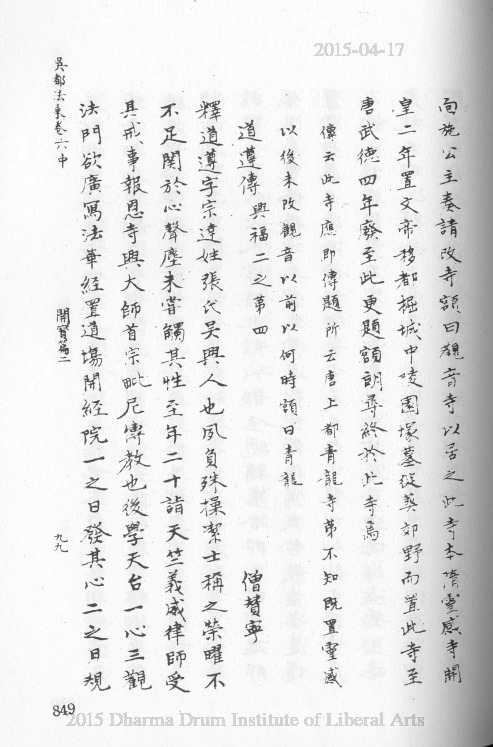 2015-04-17
而施公主奏請改寺額曰觀音寺以居之此寺本隋靈感寺開
皇二年置文帝移都掘城中陵園塚墓徙葬郊野而置此寺至
唐武德四年廢至此更題額朗尋終於此寺焉
傳云此寺應即傳題所云唐上都青龍寺第不知既置靈感
以後未改觀音以前以何時額曰青龍
道遵傳 興福二之第四 僧贊寧
釋道遵字宗達姓張氏吳興人也夙負殊操潔士稱之榮曜不
不足關於心聲塵未嘗觸其性至年二十詣天竺義威律師受
具戒事報恩寺興大師首宗毗尼傳教也後學天台一心三觀
法門欲廣寫法華經置道場開經院一之日發其心二之日規
吳都法乘卷六中
開寶篇二
九九
849
2015 Dharma Drum Institute of Liberal Arts